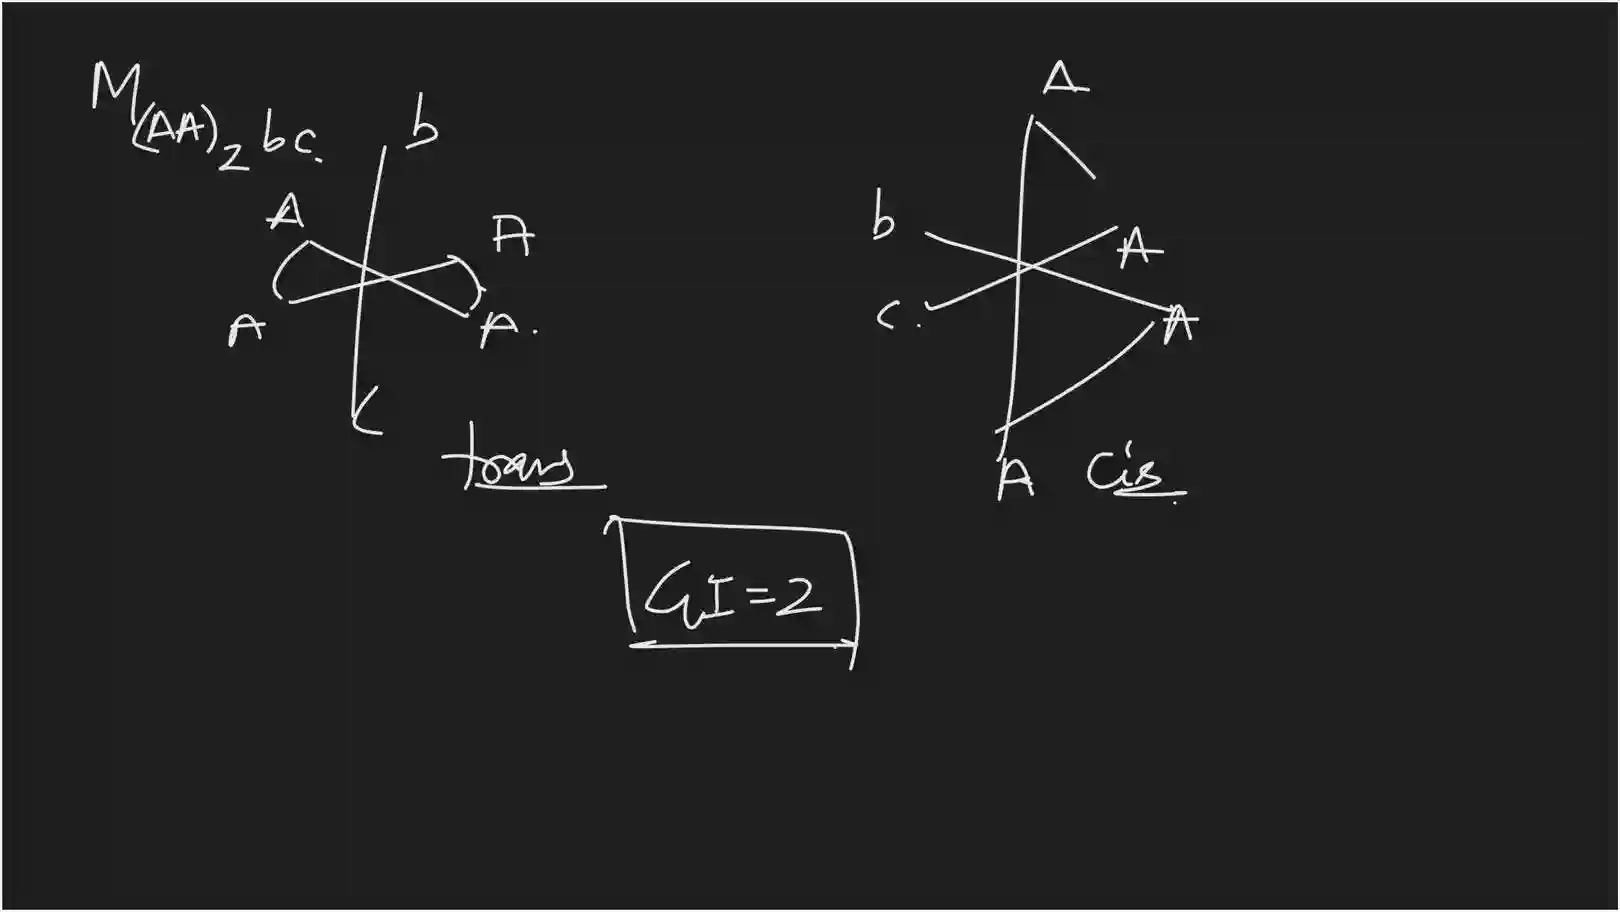 M(AA)₂bc.
b
A
A
A
A.
c
trans
A
b
A
c.
A
A
cis
GI=2